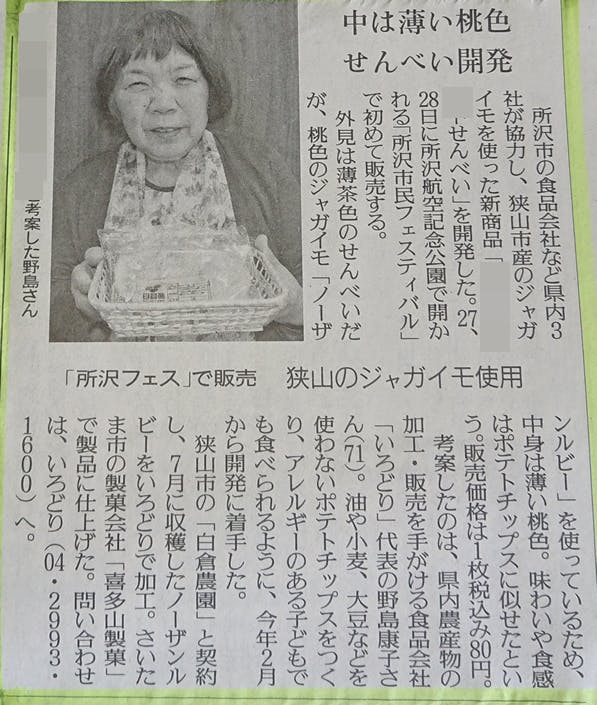 中は薄い桃色
せんべい開発
所沢市の食品会社など県内3
社が協力し、狭山市産のジャガ
イモを使った新商品「
せんべい」を開発した。27、
28日に所沢航空記念公園で開か
れる「所沢市民フェスティバル」
で初めて販売する。
外見は薄茶色のせんべいだ
が、桃色のジャガイモ「ノーザ
考案した野島さん
「所沢フェス」で販売 狭山のジャガイモ使用
ンルビー」を使っているため、
中身は薄い桃色。味わいや食感
はポテトチップスに似せたとい
う。販売価格は1枚税込み80円。
考案したのは、県内農産物の
加工・販売を手がける食品会社
「いろどり」代表の野島康子さ
ん(71)。油や小麦、大豆などを
使わないポテトチップスをつく
り、アレルギーのある子どもで
も食べられるように、今年2月
から開発に着手した。
狭山市の「白倉農園」と契約
し、7月に収穫したノーザンル
ビーをいろどりで加工。さいた
ま市の製菓会社「喜多山製菓」
で製品に仕上げた。問い合わせ
は、いろどり(04・2993・
1600)へ。